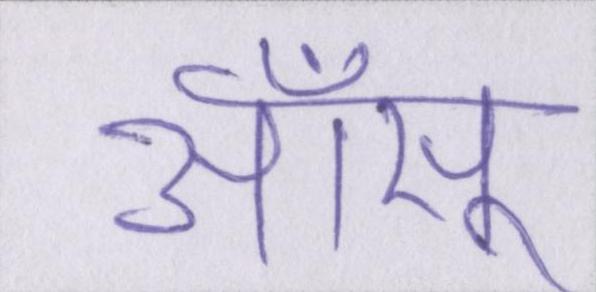 आँसू